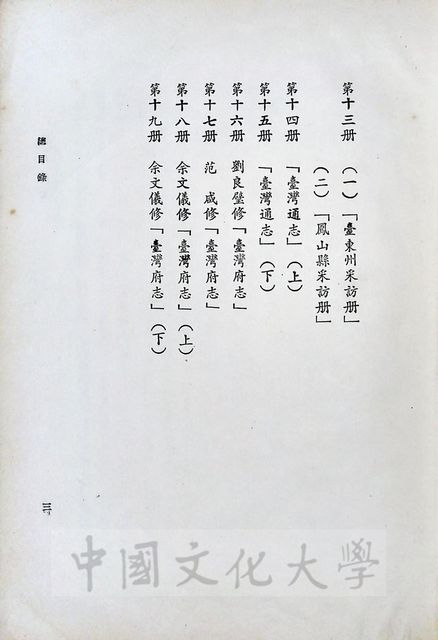 第十三册　（一）「臺東州采訪册」
（二）「鳳山縣采訪册」
第十四册　「臺灣通志」（上）
第十五册　「臺灣通志」（下）
第十六册　劉良璧修「臺灣府志」
第十七册　范　咸修「臺灣府志」
第十八册　余文儀修「臺灣府志」（上）
第十九册　余文儀修「臺灣府志」（下）
總目錄
三
中國文化大學